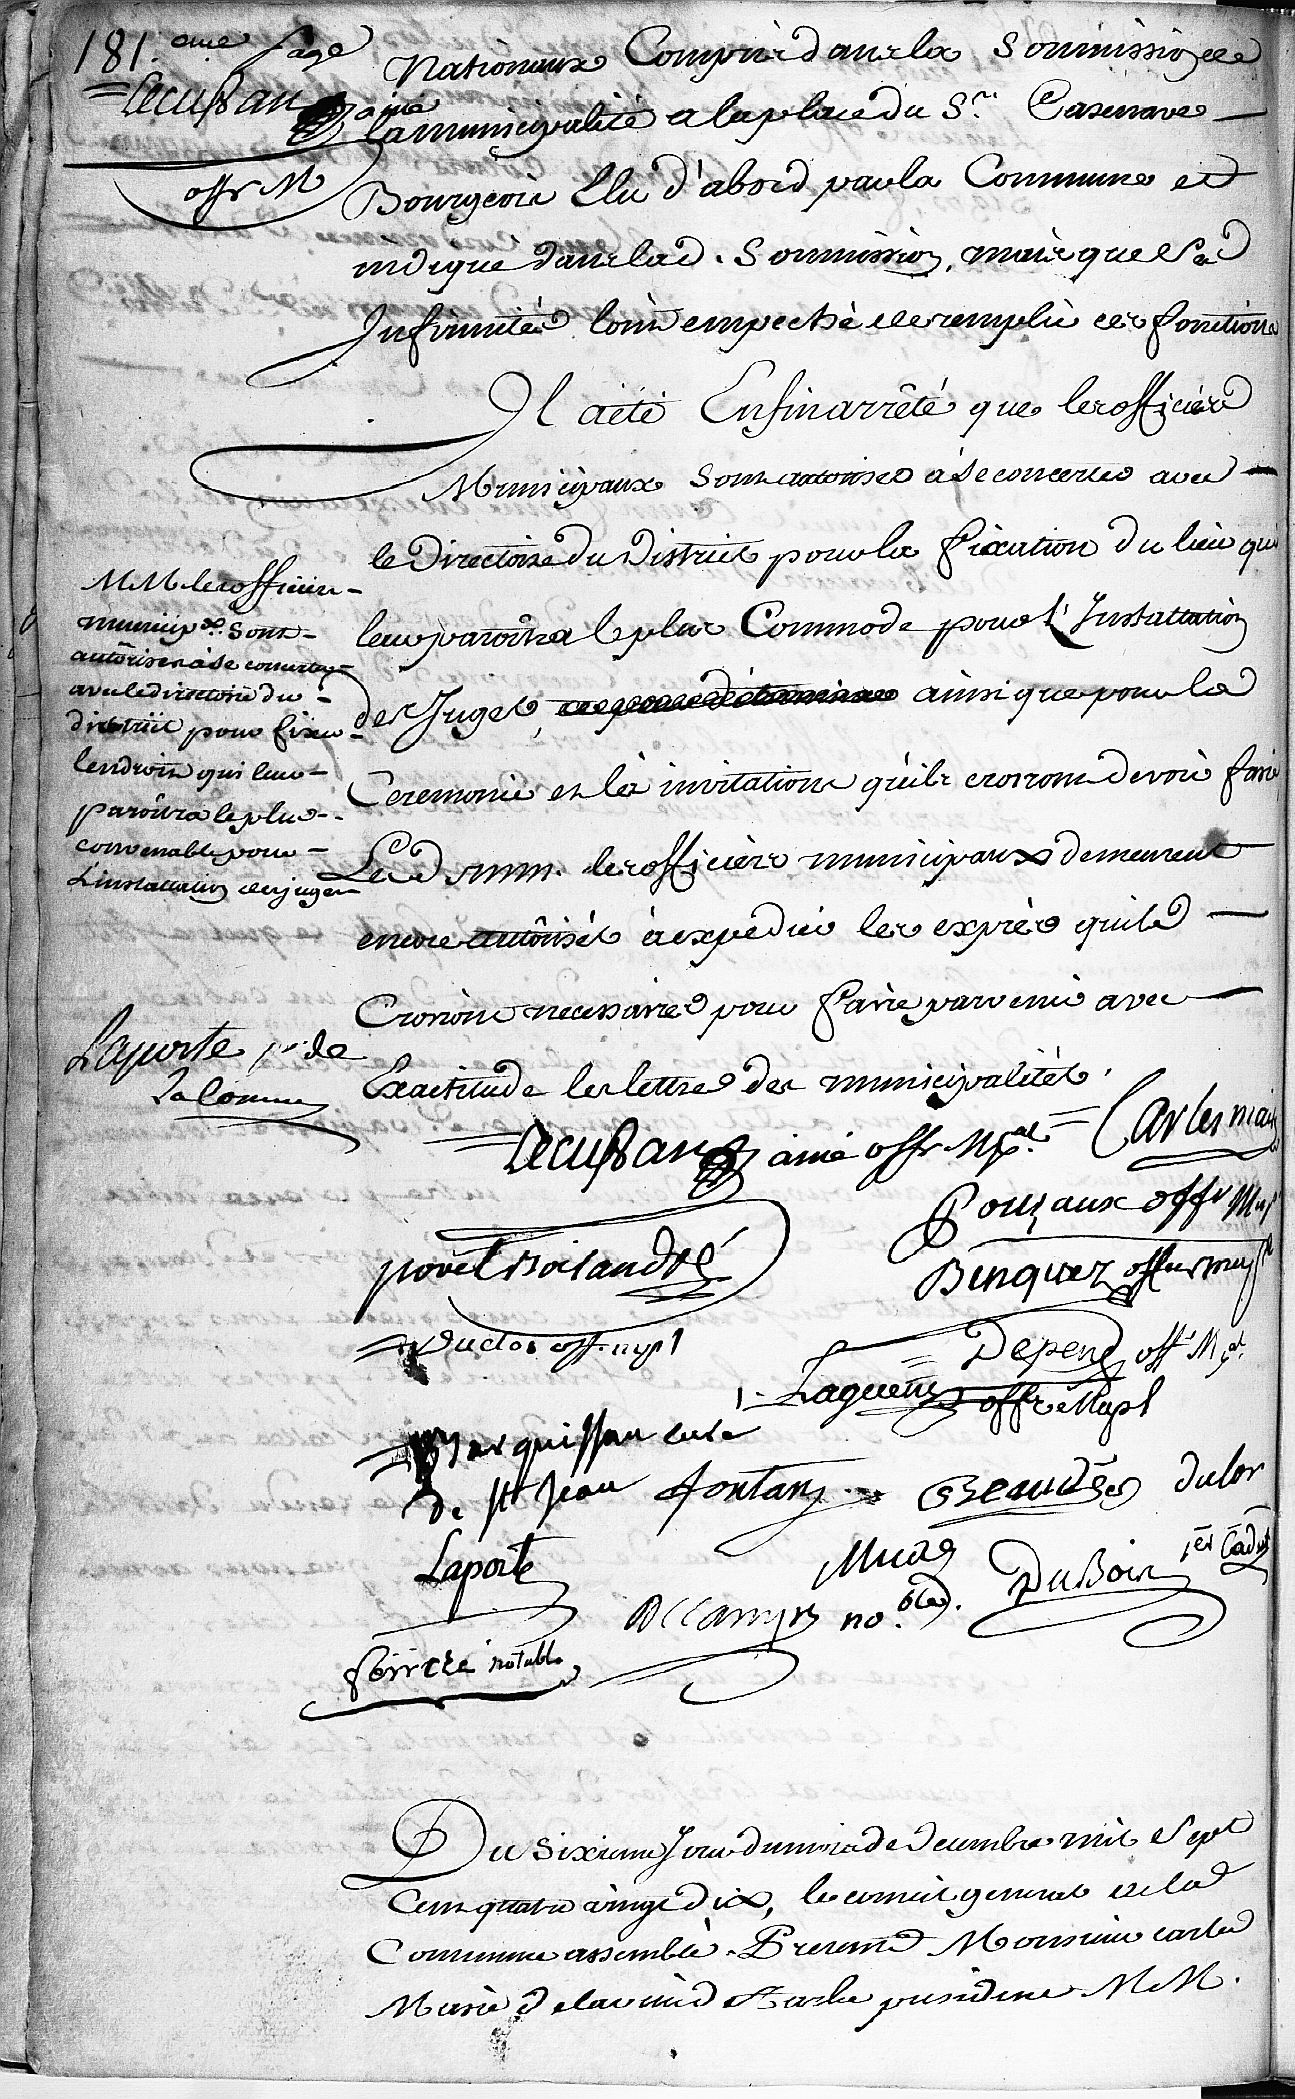 181.eme page
Lecussan ainé
offr M
Nationaux Compris dans la Soumission de
la municipalité a la place du Sr. Casenave
Bourgeois Elu d'abord par la Commune et
indiqué dans lad. Soumission, mais que Ses
Infirmités l'ont empeché de remplir ces fonctions
Il a été Enfin arrêté que les officiers
Municipaux Sont autorisés à Se concerter avec
le Directoire du District pour la fixation du lieu qui
leur paroitra le plus Commode pour L'Installation
des Juges, ainsi que pour la
Ceremonie et les invitations qu'ils croiront devoir faire
Led. mm. les officiers municipaux demeurent
encore autôrisés à expedier les exprès qu'ils
Croiront necessaires pour faire parvenir avec
Exactitude les lettres des municipalités.
MM. les officiers
municip.aux Sont
autôrisés à Se concerter
avec le directoire du
district pour fixer
l'endroit qui leur
paroitra le plus
convenable pour
L'installation des juges
Laporte pr. de
La Comune
Lecussan ainé offr. Mpal. Carles maire
Pouzaux offr Mpl
povel Boisandré
Binquez offier mupl
Duclos off. mpl
Depend off. Mpal.
Laguens offr. Mupl
Marquissau curé
de St Jean fontan Beaudéan dulor
Laporte
DuBois 1er
Decamps no.bles.
ferrere notable
Du Sixieme Jour du mois de Decembre mil Sept
Cent quatre vingt dix, le conseil general de la
Commune assemblé. Present Monsieur carles
Maire de la ville de Tarbe president MM.